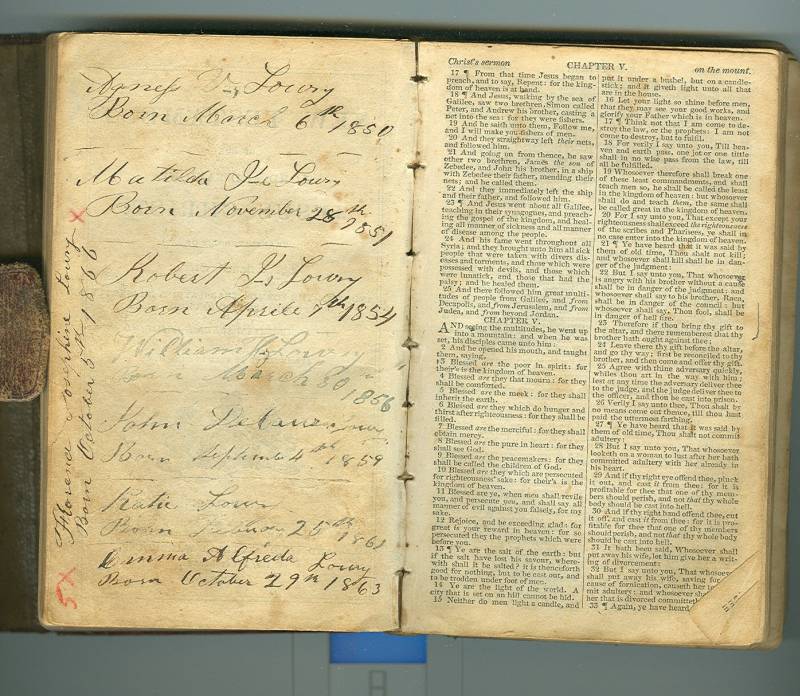 Agness V Lowry
Born March 6th 1850
Matilda J Lowry
Born November 28th 1851
Robert J Lowry
Born Aprile 7th 1854
Lowry
March 30
1856
John
Born September 4th 1859
Katie
Born 25th 1861
Emma Alfreda Lowry
Born October 29th 1863
Florence Josephine Lowry
Born October 5th 1866
X
5X
Christ's sermon
CHAPTER V.
on the mount.
17 ¶ From that time Jesus began to
preach, and to say, Repent: for the king-
dom of heaven is at hand.
18 ¶ And Jesus, walking by the sea of
Galilee, saw two brethren, Simon called
Peter, and Andrew his brother, casting a
net into the sea: for they were fishers.
19 And he saith unto them, Follow me,
and I will make you fishers of men.
20 And they straightway left their nets,
and followed him.
21 And going on from thence, he saw
other two brethren, James the son of
Zebedee, and John his brother, in a ship
with Zebedee their father, mending their
nets; and he called them.
22 And they immediately left the ship
and their father, and followed him.
23 ¶ And Jesus went about all Galilee,
teaching in their synagogues, and preach-
ing the gospel of the kingdom, and heal-
ing all manner of sickness and all manner
of disease among the people.
24 And his fame went throughout all
Syria; and they brought unto him all sick
people that were taken with divers dis-
eases and torments, and those which were
possessed with devils, and those which
were lunatick, and those that had the
palsy; and he healed them.
25 And there followed him great multi-
tudes of people from Galilee, and from
Decapolis, and from Jerusalem, and from
Judea, and from beyond Jordan.
CHAPTER V.
AND seeing the multitudes, he went up
into a mountain: and when he was
set, his disciples came unto him:
2 And he opened his mouth, and taught
them, saying,
3 Blessed are the poor in spirit: for
their's is the kingdom of heaven.
4 Blessed are they that mourn: for they
shall be comforted.
5 Blessed are the meek: for they shall
inherit the earth.
6 Blessed are they which do hunger and
thirst after righteousness: for they shall be
filled.
7 Blessed are the merciful: for they shall
obtain mercy.
8 Blessed are the pure in heart: for they
shall see God.
9 Blessed are the peacemakers: for they
shall be called the children of God.
10 Blessed are they which are persecuted
for righteousness' sake: for their's is the
kingdom of heaven.
11 Blessed are ye, when men shall revile
you, and persecute you, and shall say all
manner of evil against you falsely, for my
sake.
12 Rejoice, and be exceeding glad: for
great is your reward in heaven: for so
persecuted they the prophets which were
before you.
13 ¶ Ye are the salt of the earth: but
if the salt have lost his savour, where-
with shall it be salted? it is thenceforth
good for nothing, but to be cast out, and
to be trodden under foot of men.
14 Ye are the light of the world. A
city that is set on an hill cannot be hid.
15 Neither do men light a candle, and
put it under a bushel, but on a candle-
stick; and it giveth light unto all that
are in the house.
16 Let your light so shine before men,
that they may see your good works, and
glorify your Father which is in heaven.
17 ¶ Think not that I am come to de-
stroy the law, or the prophets: I am not
come to destroy, but to fulfil.
18 For verily I say unto you, Till hea-
ven and earth pass, one jot or one tittle
shall in no wise pass from the law, till
all be fulfilled.
19 Whosoever therefore shall break one
of these least commandments, and shall
teach men so, he shall be called the least
in the kingdom of heaven: but whosoever
shall do and teach them, the same shall
be called great in the kingdom of heaven.
20 For I say unto you, That except your
righteousness shall exceed the righteousness
of the scribes and Pharisees, ye shall in
no case enter into the kingdom of heaven.
21 ¶ Ye have heard that it was said by
them of old time, Thou shalt not kill;
and whosoever shall kill shall be in dan-
ger of the judgment:
22 But I say unto you, That whosoever
is angry with his brother without a cause
shall be in danger of the judgment: and
whosoever shall say to his brother, Raca,
shall be in danger of the council: but
whosoever shall say, Thou fool, shall be
in danger of hell fire.
23 Therefore if thou bring thy gift to
the altar, and there rememberest that thy
brother hath ought against thee;
24 Leave there thy gift before the altar,
and go thy way; first be reconciled to thy
brother, and then come and offer thy gift.
25 Agree with thine adversary quickly,
whiles thou art in the way with him;
lest at any time the adversary deliver thee
to the judge, and the judge deliver thee to
the officer, and thou be cast into prison.
26 Verily I say unto thee, Thou shalt by
no means come out thence, till thou hast
paid the uttermost farthing.
27 ¶ Ye have heard that it was said by
them of old time, Thou shalt not commit
adultery:
28 But I say unto you, That whosoever
looketh on a woman to lust after her hath
committed adultery with her already in
his heart.
29 And if thy right eye offend thee, pluck
it out, and cast it from thee: for it is
profitable for thee that one of thy mem-
bers should perish, and not that thy whole
body should be cast into hell.
30 And if thy right hand offend thee, cut
it off, and cast it from thee: for it is pro-
fitable for thee that one of thy members
should perish, and not that thy whole body
should be cast into hell.
31 It hath been said, Whosoever shall
put away his wife, let him give her a writ-
ing of divorcement:
32 But I say unto you, That whosoever
shall put away his wife, saving for
cause of fornication, causeth her to
mit adultery: and whosoever shall
her that is divorced committeth
33 ¶ Again, ye have heard